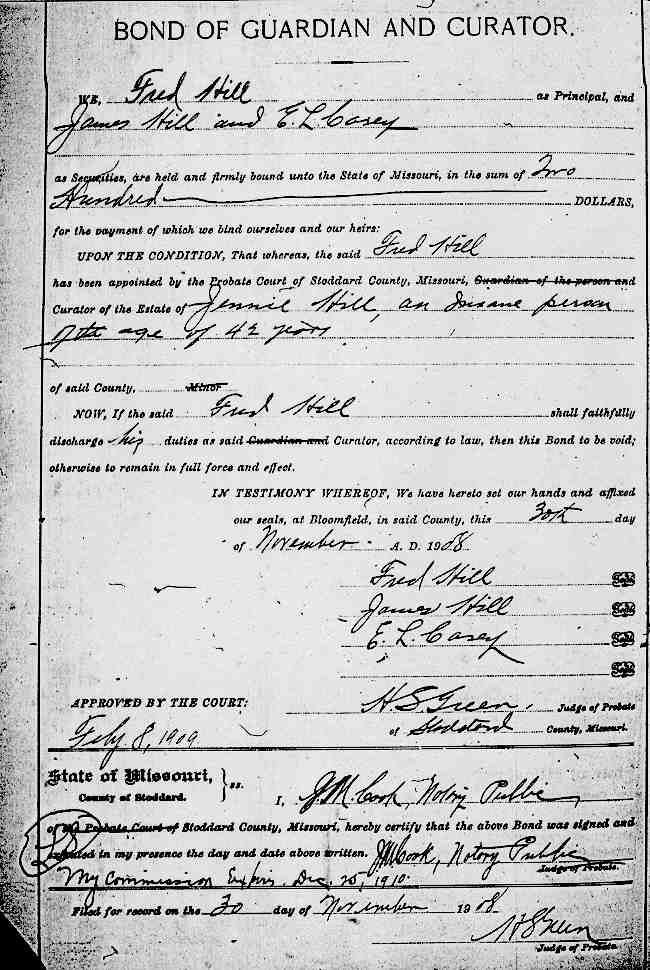 BOND OF GUARDIAN AND CURATOR.
WE, Fred Hill as Principal, and
James Hill and E. L. Casey
as Securities, are held and firmly bound unto the State of Missouri, in the sum of Two
Hundred DOLLARS,
for the payment of which we bind ourselves and our heirs:
UPON THE CONDITION, That whereas, the said Fred Hill
has been appointed by the Probate Court of Stoddard County, Missouri, Guardian of the person and
Curator of the Estate of Jennie Hill, an Insane person
of the age of 42 years
of said County, Minor
NOW, If the said Fred Hill shall faithfully
discharge his duties as said Guardian and Curator, according to law, then this Bond to be void;
otherwise to remain in full force and effect.
IN TESTIMONY WHEREOF, We have hereto set our hands and affixed
our seals, at Bloomfield, in said County, this 30th day
of November A. D. 1908
Fred Hill Seal
James Hill Seal
E. L. Casey Seal
Seal
APPROVED BY THE COURT: H S Green, Judge of Probate
Feby 8, 1909 of Stoddard County, Missouri.
State of Missouri,
County of Stoddard. } ss.
I, J. M. Cook, Notory Public
of Probate Court of Stoddard County, Missouri, hereby certify that the above Bond was signed and
executed in my presence the day and date above written. J M Cook, Notory Public
Judge of Probate.
My Commission Expirs. Dec. 25, 1910
Filed for record on the 30 day of November 1908
H S Green
Judge of Probate